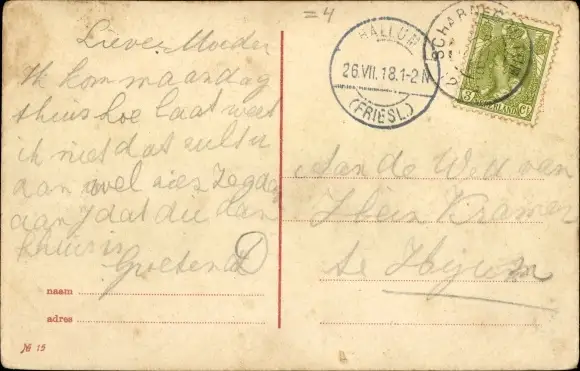 =4
Lieve Moeder
Ik kom maandag
thuis hoe laat weet
ik niet dat zult u
dan wel zien zegda
dat die dan
thuis is
Groetend
naam
adres
№ 15
HALLUM
26.VII.18.1-2N
(FRIESL.)
SCHARNE
3 Ct
Aan de Wed van
Hein Kramer
te Hijum